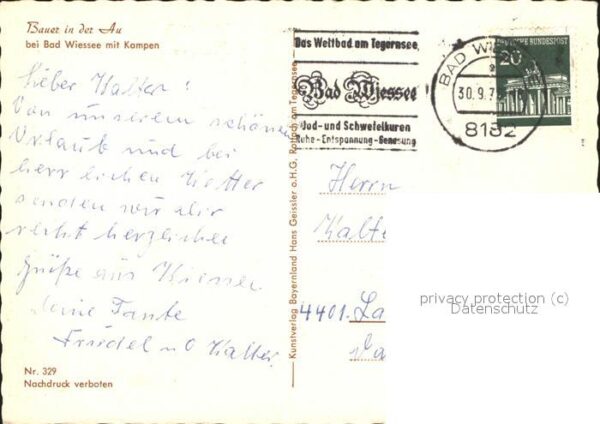 Bauer in der Au
bei Bad Wiessee mit Kampen
Lieber Walter!
Von unserem schönen
Urlaub und bei
herrlichen Wetter
senden wir dir
recht herzliche
Grüße aus Wiessee
deine Tante
Friedel u O Walter
Nr. 329
Nachdruck verboten
Kunstverlag Bayernland Hans Geissler o.H.G. Rottach am Tegernsee
Das Weltbad am Tegernsee
Bad Wiessee
Bad- und Schwefelkuren
Ruhe - Entspannung - Genesung
BAD WI
30.9.7
8182
DEUTSCHE BUNDESPOST
20
Herrn
Walte
4401 La
privacy protection (c)
Datenschutz